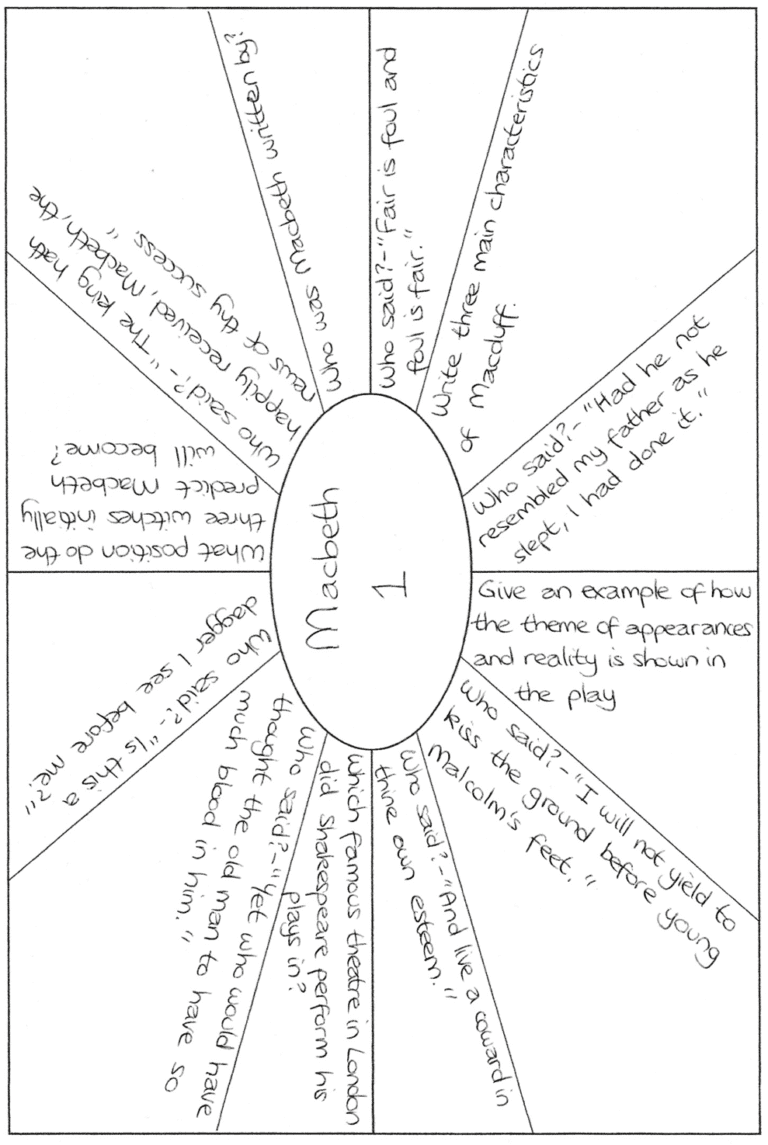 Macbeth
1
Who said?-"Fair is foul and
foul is fair."
Write three main characteristics
of Macduff.
Who said?-"Had he not
resembled my father as he
slept, I had done it."
Give an example of how
the theme of appearances
and reality is shown in
the play
Who said?-"I will not yield to
kiss the ground before young
Malcolm's feet."
Who said?-"And live a coward in
thine own esteem."
Which famous theatre in London
did Shakespeare perform his
plays in?
Who said?-"Yet who would have
thought the old man to have so
much blood in him."
Who said?-"Is this a
dagger I see before me?"
What position do the
three witches initially
predict Macbeth
will become?
Who said?-"The king hath
happily received, Macbeth, the
news of thy success."
Who was Macbeth written by?